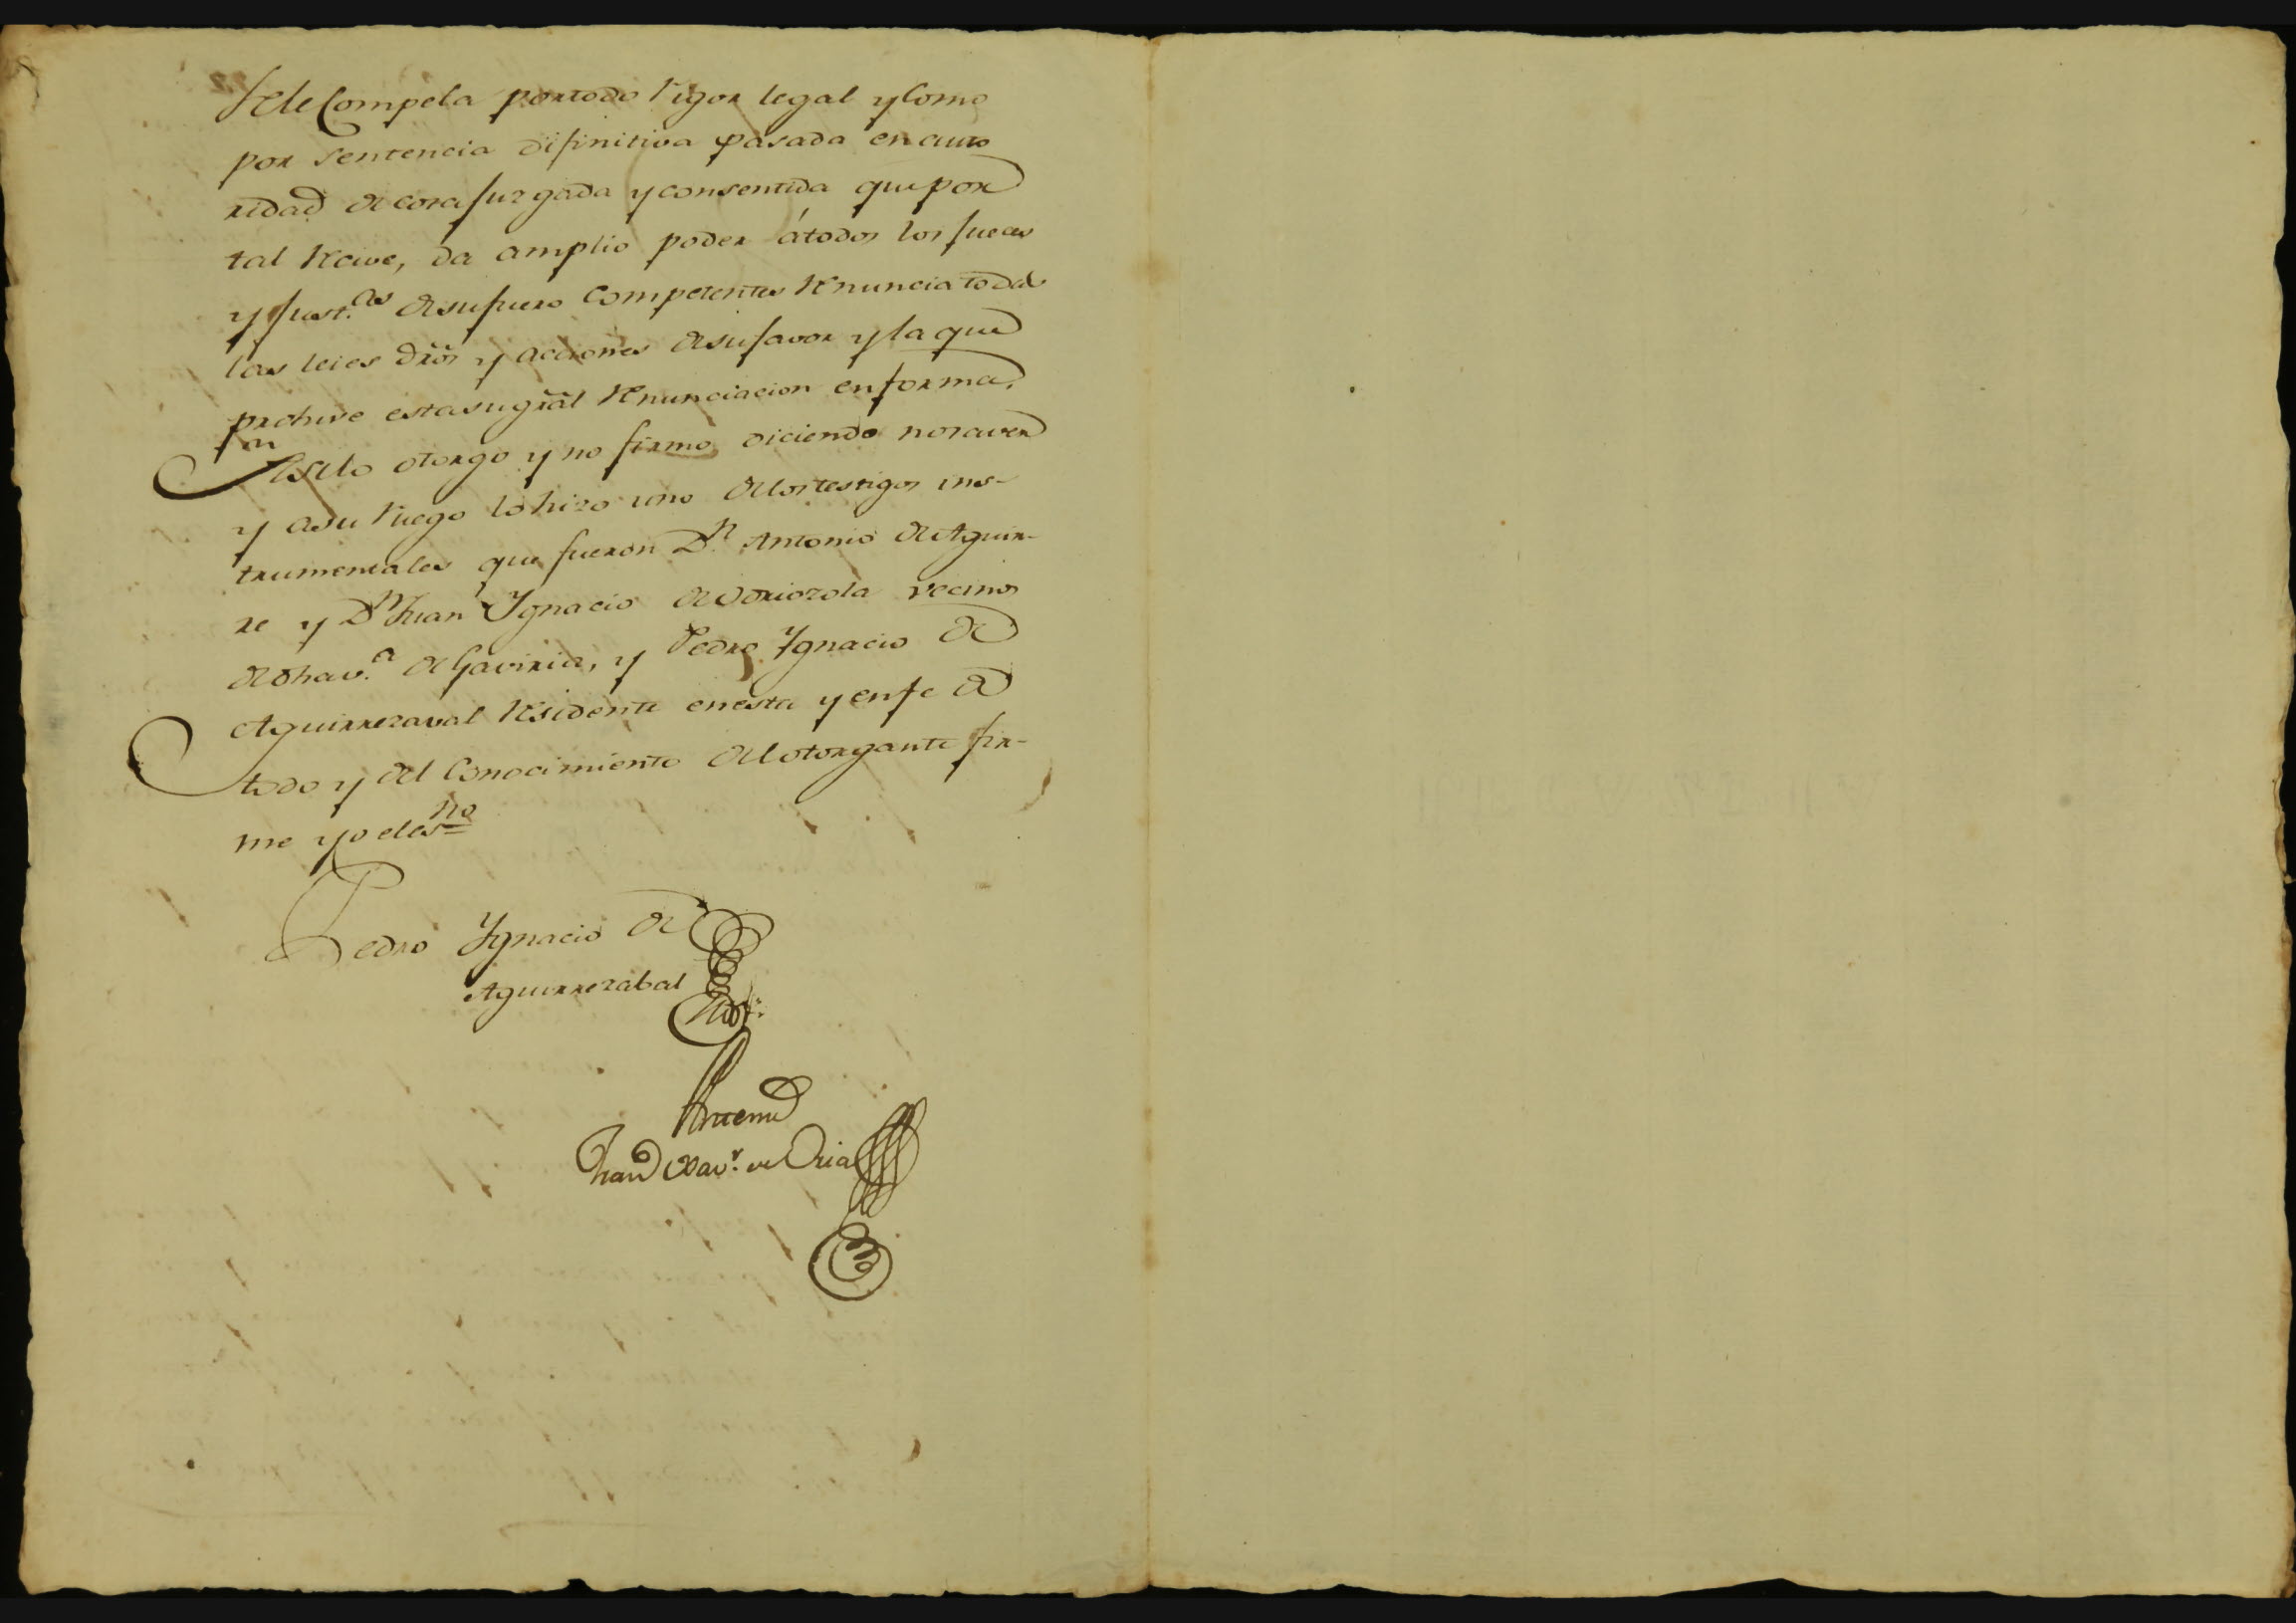 se le Compela por todo rigor legal y Como
por sentencia difinitiva pasada en auto
ridad de cosa juzgada y consentida que por
tal recive, da amplio poder á todos los jueces
y just.as de su fuero Competentes renuncia todas
las leies dros y acciones de su favor y la que
prohive esta su gral renunciacion en forma,
Asi lo otorgo y no firmo diciendo no saver
y a su ruego lo hizo uno de los testigos ins-
trumentales que fueron Dn. Antonio de Aguir-
re y Dn Juan Ygnacio de Odriozola vecinos
de dha v.a de Gaviria, y Pedro Ygnacio de
Aguirrezaval residente en esta y en fe de
todo y del Conocimiento del otorgante fir-
me yo el esno
Pedro Ygnacio de
Aguirrezabal
Antemi
Juan Xavr. de Oria